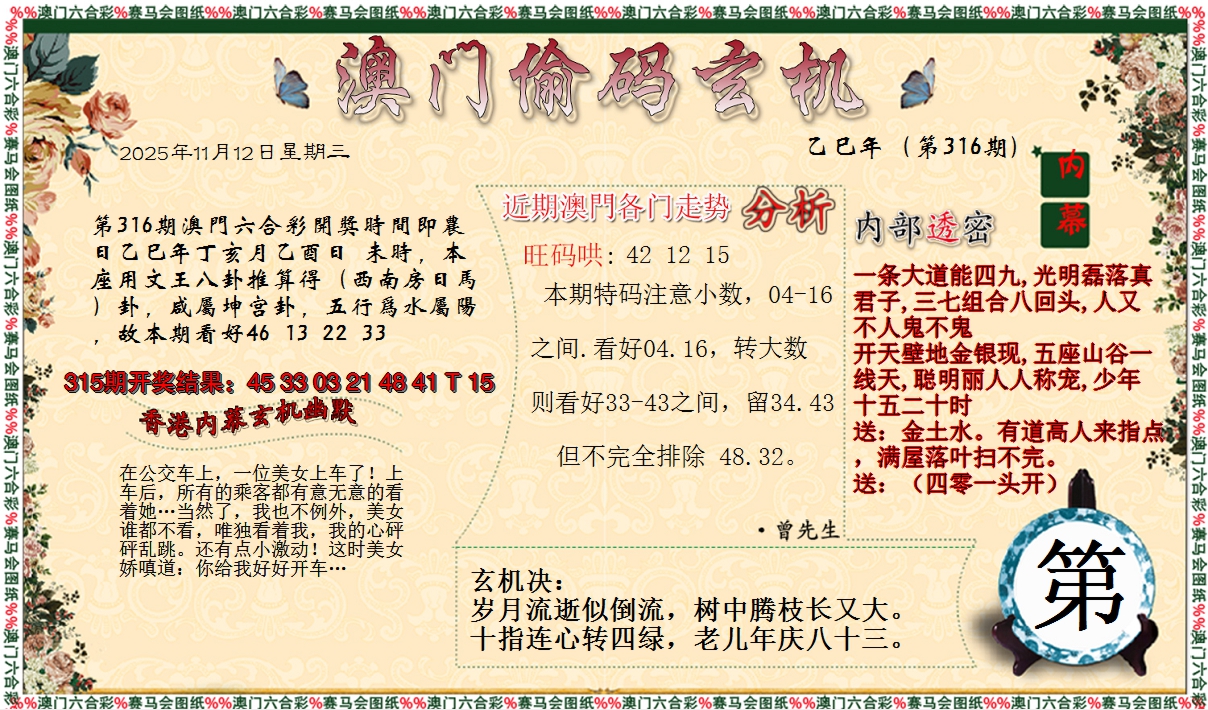 %%澳门六合彩%赛马会图纸%%澳门六合彩%赛马会图纸%%澳门六合彩%赛马会图纸%%澳门六合彩%赛马会图纸%%澳门六合彩%赛马会图纸%%澳门六合彩%赛马会图纸%%
澳门偷码玄机
2025年11月12日星期三
乙巳年（第316期）
内幕
第316期澳門六合彩開獎時間即農
日乙巳年丁亥月乙酉日 未時，本
座用文王八卦推算得（西南房日馬
）卦，咸屬坤宫卦，五行爲水屬陽
，故本期看好46 13 22 33
315期开奖结果：45 33 03 21 48 41 T 15
香港内幕玄机幽默
在公交车上，一位美女上车了！上
车后，所有的乘客都有意无意的看
着她…当然了，我也不例外，美女
谁都不看，唯独看着我，我的心砰
砰乱跳。还有点小激动！这时美女
娇嗔道：你给我好好开车…
近期澳門各门走势 分析
旺码哄: 42 12 15
本期特码注意小数，04-16
之间.看好04.16，转大数
则看好33-43之间，留34.43
但不完全排除 48.32。
·曾先生
内部透密
一条大道能四九,光明磊落真
君子,三七组合八回头,人又
不人鬼不鬼
开天壁地金银现,五座山谷一
线天,聪明丽人人称宠,少年
十五二十时
送：金土水。有道高人来指点
，满屋落叶扫不完。
送：（四零一头开）
玄机决：
岁月流逝似倒流，树中腾枝长又大。
十指连心转四绿，老儿年庆八十三。
第
%%澳门六合彩%赛马会图纸%%澳门六合彩%赛马会图纸%%澳门六合彩%赛马会图纸%%澳门六合彩%赛马会图纸%%澳门六合彩%赛马会图纸%%澳门六合彩%赛马会图纸%%